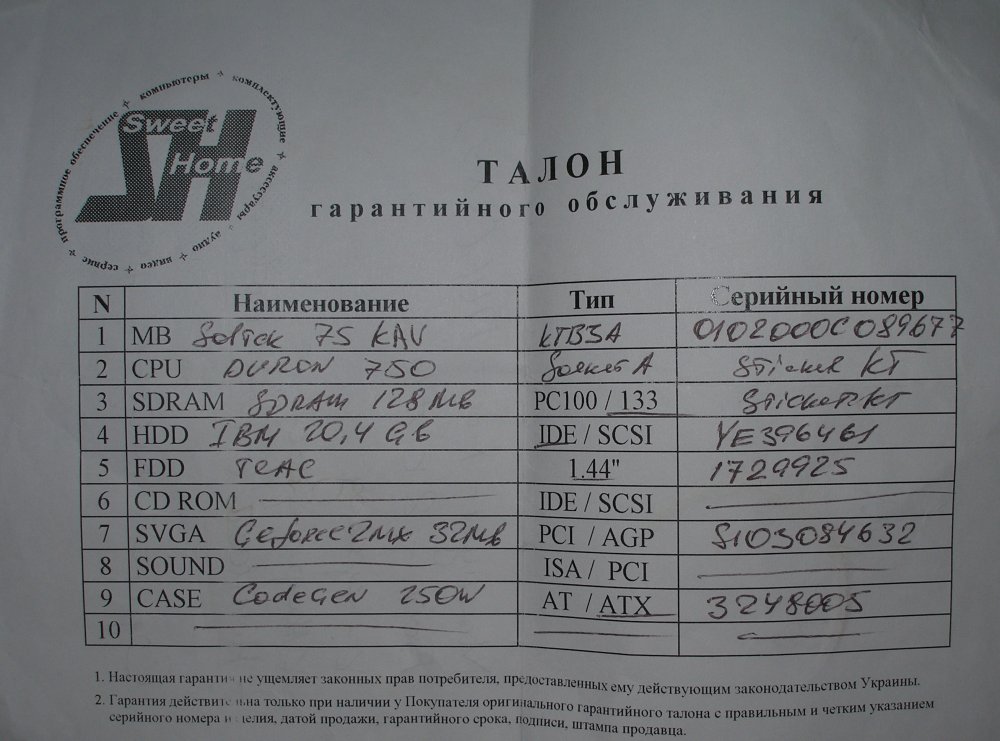 программное обеспечение + компьютеры + комплектующие + аксессуары + аудио + видео + сервис
Sweet
Home
ТАЛОН
гарантийного обслуживания
N Наименование Тип Серийный номер
1 MB Soltek 75 KAV KTB3A 0102000C089677
2 CPU DURON 750 Socket A Sticker KT
3 SDRAM SDRAM 128MB PC100 / 133 Sticker KT
4 HDD IBM 20,4 GB IDE / SCSI YE396461
5 FDD TEAC 1.44" 1729925
6 CD ROM IDE / SCSI
7 SVGA Geforce2MX 32MB PCI / AGP S103084632
8 SOUND ISA / PCI
9 CASE CodeGen 250W AT / ATX 3248005
10
1. Настоящая гарантия не ущемляет законных прав потребителя, предоставленных ему действующим законодательством Украины.
2. Гарантия действительна только при наличии у Покупателя оригинального гарантийного талона с правильным и четким указанием
серийного номера изделия, датой продажи, гарантийного срока, подписи, штампа продавца.